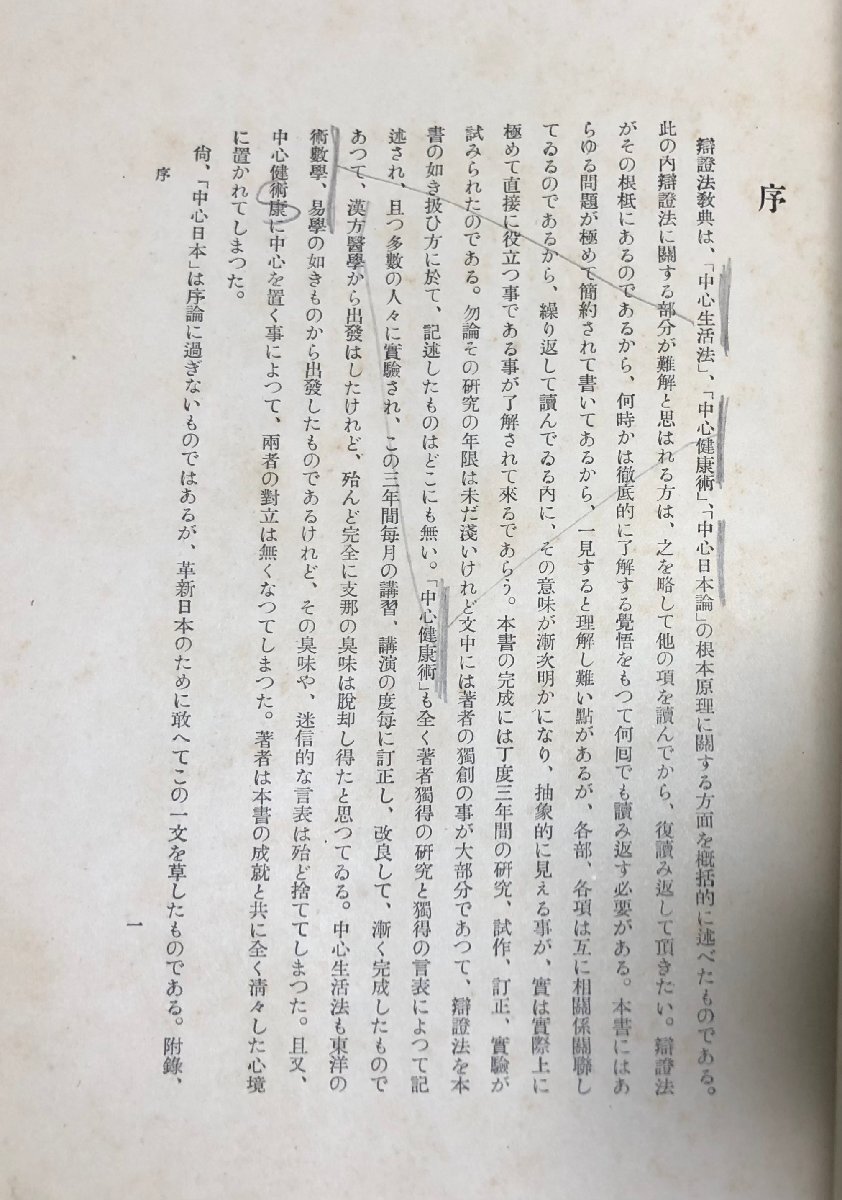 序
辯證法教典は、「中心生活法」、「中心健康術」、「中心日本論」の根本原理に關する方面を概括的に述べたものである。
此の内辯證法に關する部分が難解と思はれる方は、之を略して他の項を讀んでから、復讀み返して頂きたい。辯證法
がその根柢にあるのであるから、何時かは徹底的に了解する覺悟をもつて何回でも讀み返す必要がある。本書にはあ
らゆる問題が極めて簡約されて書いてあるから、一見すると理解し難い點があるが、各部、各項は互に相關係關聯し
てゐるのであるから、繰り返して讀んでゐる内に、その意味が漸次明かになり、抽象的に見える事が、實は實際上に
極めて直接に役立つ事である事が了解されて來るであらう。本書の完成には丁度三年間の研究、試作、訂正、實驗が
試みられたのである。勿論その研究の年限は未だ淺いけれど文中には著者の獨創の事が大部分であつて、辯證法を本
書の如き扱ひ方に於て、記述したものはどこにも無い。「中心健康術」も全く著者獨得の研究と獨得の言表によつて記
述され、且つ多數の人々に實驗され、この三年間每月の講習、講演の度每に訂正し、改良して、漸く完成したもので
あつて、漢方醫學から出發はしたけれど、殆んど完全に支那の臭味は脫却し得たと思つてゐる。中心生活法も東洋の
術數學、易學の如きものから出發したものであるけれど、その臭味や、迷信的な言表は殆ど捨ててしまつた。且又、
中心健術康に中心を置く事によつて、兩者の對立は無くなつてしまつた。著者は本書の成就と共に全く淸々した心境
に置かれてしまつた。
尙、「中心日本」は序論に過ぎないものではあるが、革新日本のために敢へてこの一文を草したものである。附錄、
序
一